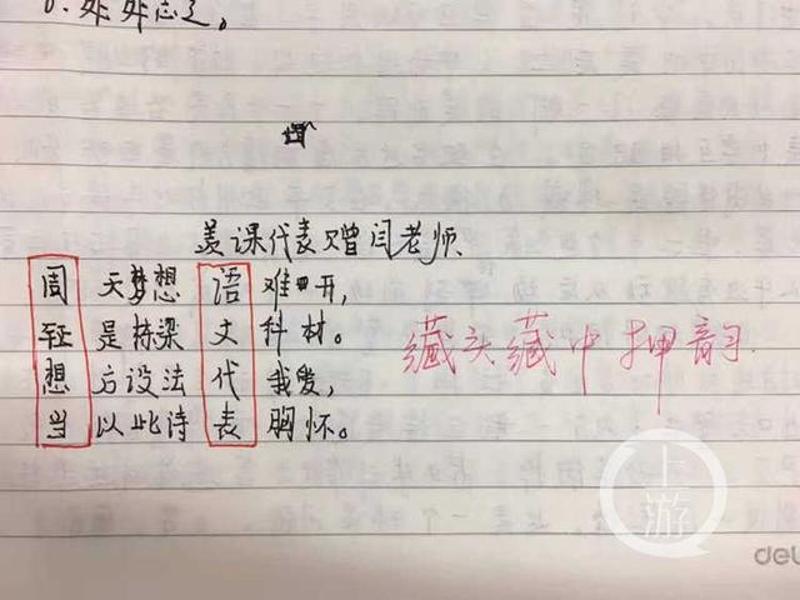 6. 处处志之。
课代表赠闫老师
周天梦想语难开，
轻是栋梁文科材。
想方设法代我爱，
当以此诗表胸怀。
藏头藏中押韵
上游
del